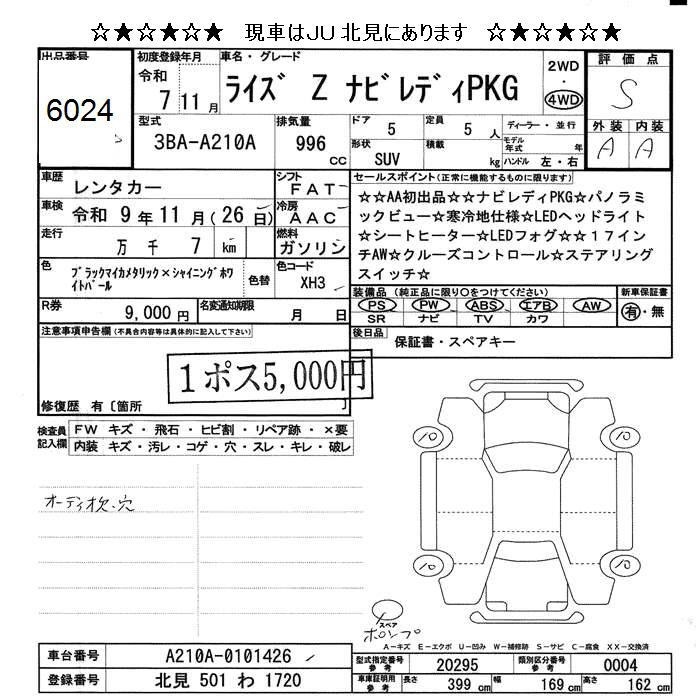 ☆★☆★☆★☆ 現車はJU北見にあります ☆★☆★☆★☆
出品番号 初度登録年月 車名・グレード 2WD・4WD 評価点
6024 令和 7 11月 ライズ Z ナビレディPKG S
型式 3BA-A210A 排気量 996 cc
ドア 5 定員 5 人 ディーラー・並行 外装 内装
形状 SUV 積載 kg モデル年式 年 ハンドル 左・右 A A
車歴 レンタカー シフト FAT セールスポイント(正常に機能するものに限ります)
車検 令和 9年11月(26日) 冷房 AAC
走行 万 千 7 km 燃料 ガソリン
☆☆AA初出品☆☆ナビレディPKG☆パノラミ
ックビュー☆寒冷地仕様☆LEDヘッドライト
☆シートヒーター☆LEDフォグ☆☆17イン
チAW☆クルーズコントロール☆ステアリング
スイッチ☆
色 ブラックマイカメタリック×シャイニングホワ
イトパール 色替 色コード XH3
R券 9,000円 名変通知期限 月 日
装備品(純正品に限り○をつけてください) 新車保証書
PS PW ABS エアB AW 有・無
SR ナビ TV カワ
注意事項申告欄(不具合内容等は具体的に記入して下さい)
後日品 保証書・スペアキー
1ポス5,000円
修復歴 有〔箇所 〕
検査員記入欄 FW キズ・飛石・ヒビ割・リペア跡・×要
内装 キズ・汚レ・コゲ・穴・スレ・キレ・破レ
10 10
オーディ枕.穴
10 10
スペア
ポンプ
A-キズ E-エクボ U-凹み W-補修跡 S-サビ C-腐食 XX-交換済
車台番号 A210A-0101426
登録番号 北見 501 わ 1720
型式指定番号参考 20295 類別区分番号参考 0004
車庫証明用参考 長さ 399 cm 幅 169 cm 高さ 162 cm